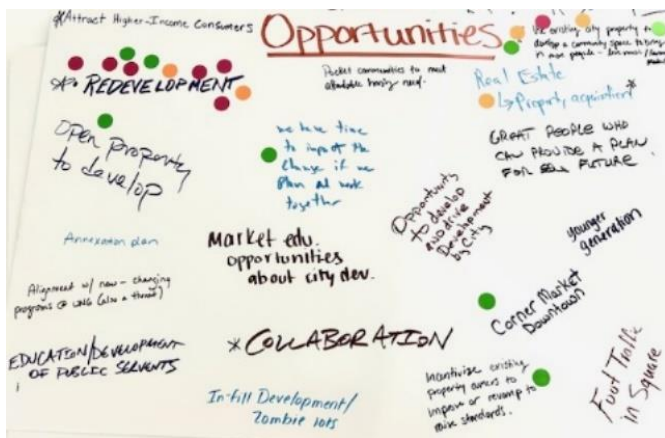 *Attract Higher-Income Consumers
Opportunities
Use existing city property to
develop a community space to bring
in more people - less
* REDEVELOPMENT
Pocket communities to meet
affordable housing need.
Real Estate
↳ Property acquisition *
Open Property
to develop
we have time
to impact the
change if we
plan and work
together
GREAT PEOPLE WHO
CAN PROVIDE A PLAN
FOR FUTURE.
Opportunity
to develop
and drive
Development
by City
younger
generation
Annexation plan
Market edu.
opportunities
about city dev.
Alignment w/ new-changing
programs @ UNG (also a threat)
Corner Market
Downtown
EDUCATION/DEVELOPMENT
OF PUBLIC SERVENTS
* COLLABORATION
In-fill Development/
Zombie lots
Incentivize existing
property owners to
improve or revamp to
raise standards.
Foot Traffic
in Square